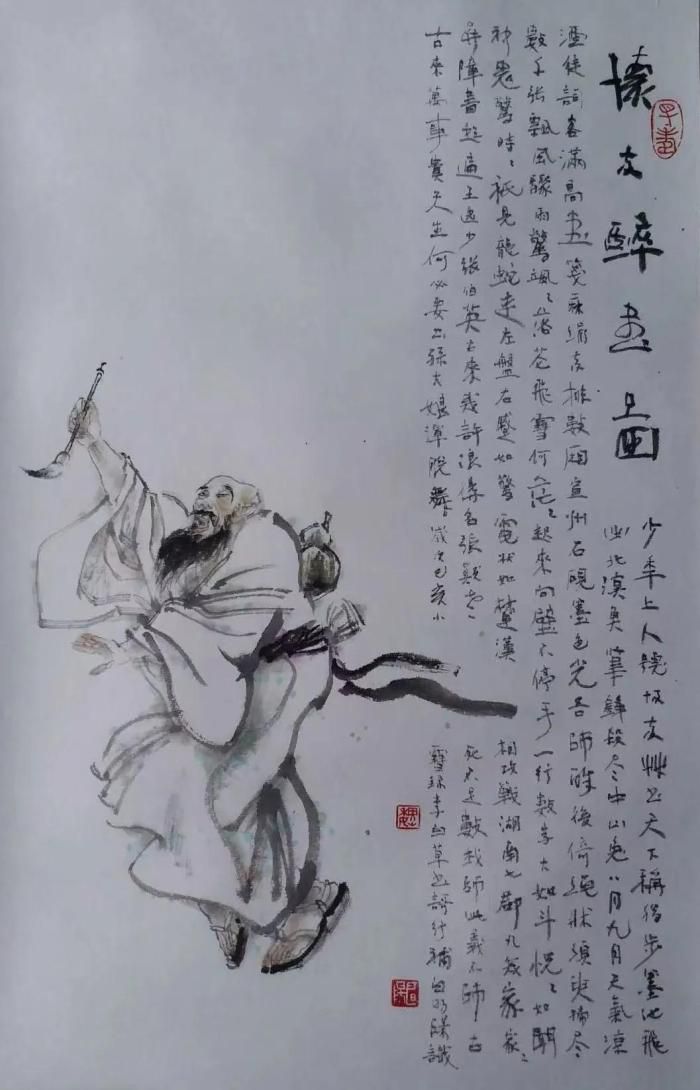 懷素醉書圖
少年上人號懷素草書天下稱獨步墨池飛
出北溟魚筆鋒殺盡中山兔八月九月天氣涼
酒徒詞客滿高堂箋麻絹素排數廂宣州石硯墨色光吾師醉後倚繩床須臾掃盡
數千張飄風驟雨驚颯々落花飛雪何茫々起來向壁不停手一行數字大如斗恍々如聞
神鬼驚時々祇見龍蛇走左盤右蹙如驚電狀如楚漢相攻戰湖南七郡凡幾家家々
屏障書題遍王逸少張伯英古來幾許浪得名張顛老死不足數我師此義不師古
古來萬事貴天生何必要公孫大娘渾脫舞歲次己亥小雪錄李白草書歌行補白明陽識